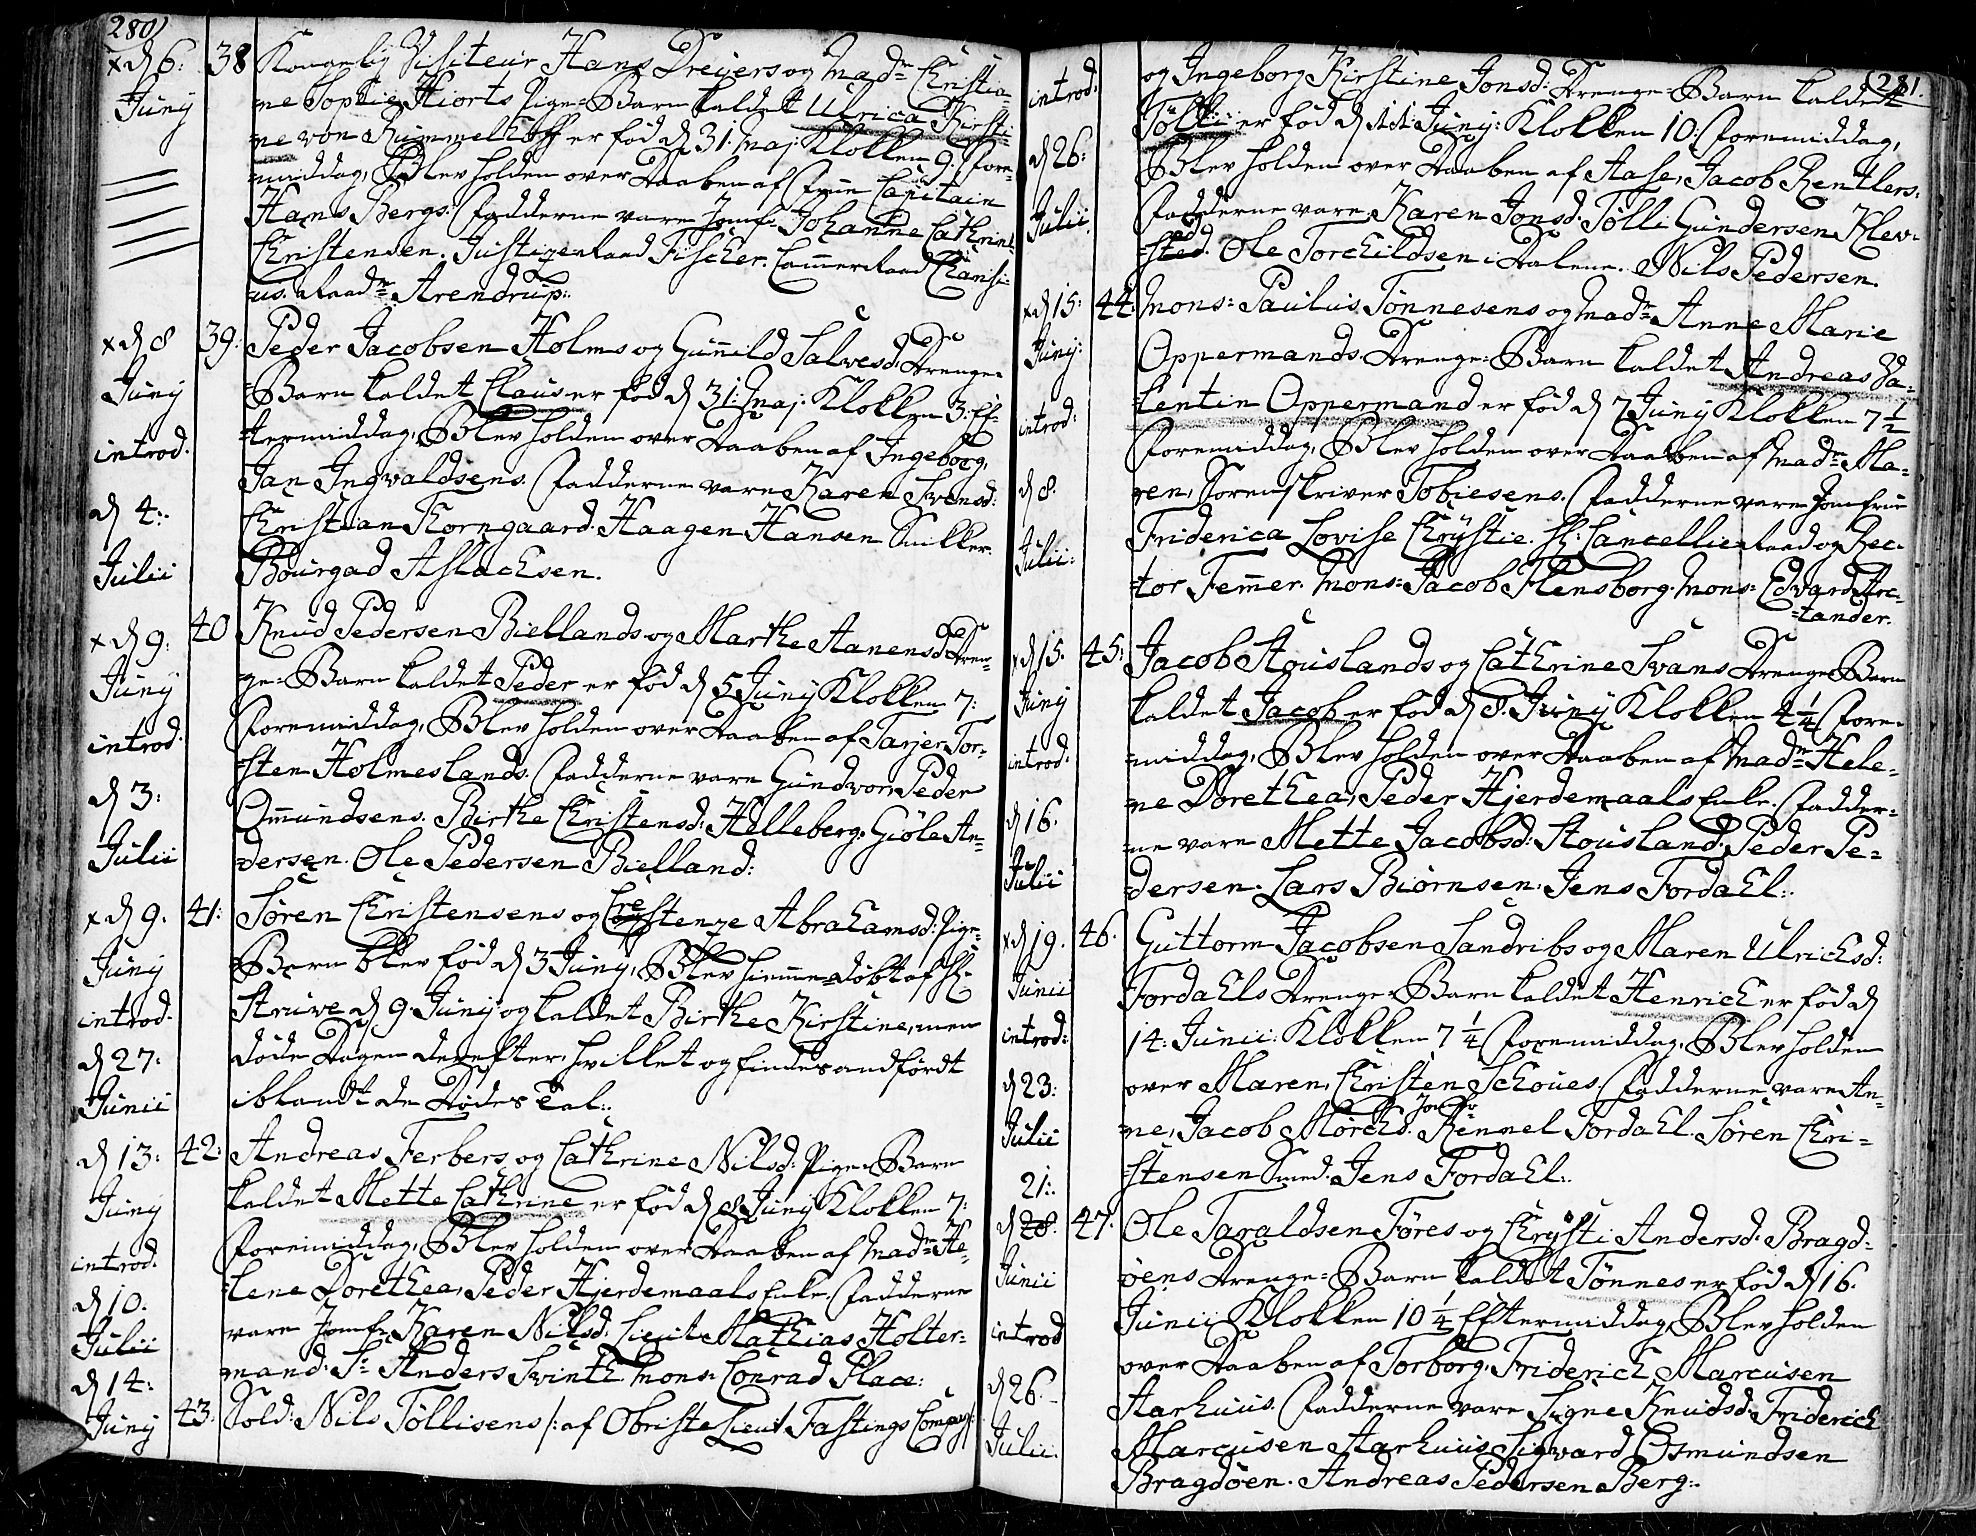 280)
x d 6:
Juny
38 Kongelig Visiteur Hans Dreyers og Madme Christia-
ne Sophie Hiorts Pige-Barn kaldet Ulrica Kirsti-
ne von Rummelhoff er fød d 31: Maj: Klokken 9 Fore-
middag, Blev holden over Daaben af Frue Capitain
Hans Bergs. Fadderne vare Jomfr Johanne Cathrine
Christensen. Justizeraad Fischer. Cammerraad Clausi-
us. Raadm Arendrup:
x d 8
Juny
introd.
d 4:
Julii
39: Peder Jacobsen Holms og Gunnild Salvesd: Drenge-
Barn kaldet Claus er fød d 31: Maj: Klokken 3: Ef-
termiddag, Blev holden over Daaben af Ingeborg,
Jan Ingvaldsens. Fadderne vare Karen Svensd:
Christian Korngaard. Haagen Hansen Snikker.
Bourgad Aslachsen.
x d 9:
Juny
introd.
d 3:
Julii
40 Knud Pedersen Biellands og Marthe Aanensd: Dren-
ge-Barn kaldet Peder er fød d 5 Juny Klokken 7:
Foremiddag, Blev holden over Daaben af Tarjer Tor-
sten Holmeslands. Fadderne vare Gundvor, Peder
Ommundsens. Birthe Christensd: Helleberg. Giøle An-
dersen. Ole Pedersen Bielland:
x d 9.
Juny
introd.
d 27:
Junii
41: Søren Christensens og Crestenze Abrahamsd: Pige-
Barn blev fød d 3 Juny, Blev hiemme-døbt af Hr
Struwe d 9 Juny og kaldet Birthe Kirstine, men
døde Dagen derefter, hvilket og findes andførdt
iblandt de Dødes Tal:
d 13:
Juny
introd.
d 10.
Julii
42: Andreas Ferbers og Cathrine Nilsd: Pige-Barn
kaldet Mette Cathrine er fød d 8 Juny Klokken 7:
Foremiddag, Blev holden over Daaben af Madme He-
lene Dorethea, Peder Hjerdemaals Enke. Fadderne
vare Jomfr Karen Nilsd. Lieut: Mathias Holter-
mand. Sr Anders Svinth. Mons: Conrad Place:
d 14:
Juny
43. Sold: Nils Tøllisens /: af Obriste Lieut Fastings Compag:
281.
introd.
d 26:
Julii
og Ingeborg Kirstine Jonsd: Drenge-Barn kaldet
Tølli er fød d 11 Juny: Klokken 10: Foremiddag,
Blev holden over Daaben af Aase, Jacob Rentlers.
Fadderne vare Karen Jonsd. Tølli Gundersen Klev-
sted. Ole Torchildsen i Dalene. Nils Pedersen.
x d 15:
Juny:
introd:
d 8.
Julii:
44. Mons: Paulus Tønnesens og Madme Anne Marie
Oppermands Drenge-Barn kaldet Andreas Va-
lentin Oppermand er fød d 7 Juny Klokken 7 1/2
Foremiddag, Blev holden over Daaben af Madme Ma-
ren, Sorenskriver Tobiesens. Fadderne vare Jomfrue
Friderica Lovise Chrystie. Hr: Cancellieraad og Rec-
tor Femmer. Mons: Jacob Flensborg. Mons: Edvard Arc-
tander.
x d 15.
Juny
introd.
d 16.
Julii
45: Jacob Stouslands og Cathrine Svans Drenge-Barn
kaldet Jacob er fød d 8. Juny Klokken 4 1/4 Fore-
middag, Blev holden over Daaben af Madme Hele-
ne Dorethea, Peder Hjerdemaals Enke. Fadder-
ne vare Mette Jacobsd: Stousland. Peder Pe-
dersen. Lars Biørnsen. Jens Fordahl:
x d 19.
Junii
introd:
d 23:
Julii
46. Guttorm Jacobsen Sandribs og Maren Ulrichsd:
Fordahls Drenge-Barn kaldet Henrich er fød d
14: Junii: Klokken 7 1/4 Foremiddag. Blev holden
over Maren, Christen Schoues. Fadderne vare An-
ne, Jacob Mørchs. Jomfr Kennel Fordahl. Søren Chri-
stensen Smed. Jens Fordahl:
21:
d 28.
Junii
introd
d 26.
Julii.
47. Ole Taraldsen Føres og Chrysti Andersd. Bragd-
øens Drenge-Barn kaldet Tønnes er fød d 16.
Junii Klokken 10 1/4 Eftermiddag, Blev holden
over Daaben af Torborg, Friderich Marcusen
Aarhuus. Fadderne vare Signe Knudsd. Friderich
Marcusen Aarhuus. Sigvard Osmundsen
Bragdøen. Andreas Pedersen Berg: